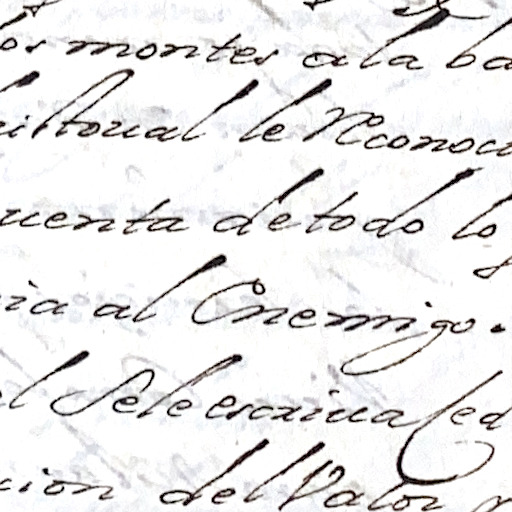 los montes ala ba
le Reconoci
uenta detodo lo
ia al Enemigo.
el Sele escriua
cion del Valor y